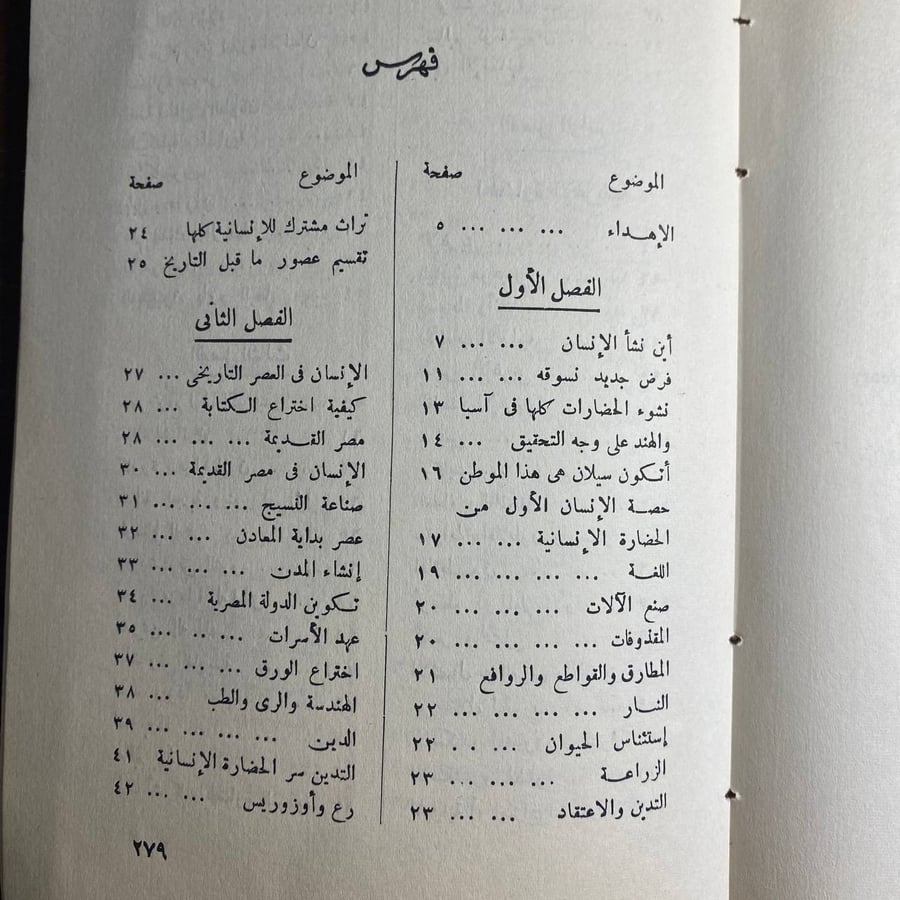 فهرس
الموضوع صفحة
الإهداء ... ... ... ٥
الفصل الأول
أين نشأ الإنسان ... ... ٧
فرض جديد نسوقه ... ... ١١
نشوء الحضارات كلها فى آسيا ١٣
والهند على وجه التحقيق ... ١٤
أتكون سيلان هى هذا الموطن ١٦
حصة الإنسان الأول من
الحضارة الإنسانية ... ... ١٧
اللغة ... ... ... ... ١٩
صنع الآلات ... ... ... ٢٠
المقذوفات ... ... ... ... ٢٠
المطارق والقواطع والروافع ٢١
النار ... ... ... ... ٢٢
إستئناس الحيوان ... . . ٢٢
الزراعة ... ... ... ٢٣
التدين والاعتقاد ... ... ٢٣
الموضوع صفحة
تراث مشترك للإنسانية كلها ٢٤
تقسيم عصور ما قبل التاريخ ٢٥
الفصل الثانى
الإنسان فى العصر التاريخى ... ٢٧
كيفية اختراع الكتابة ... ٢٨
مصر القديمة ... ... ... ٢٨
الإنسان فى مصر القديمة ... ٣٠
صناعة النسيج ... ... ... ٣١
عصر بداية المعادن ... ... ٣٢
إنشاء المدن ... ... ... ٣٣
تكوين الدولة المصرية ... ٣٤
عهد الأسرات ... .. ... ٣٥
اختراع الورق ... ... ... ٣٧
الهندسة والرى والطب ... ٣٨
الدين ... ... ... ... ٣٩
التدين سر الحضارة الإنسانية ٤١
رع وأوزوريس ... ... ٤٢
٢٧٩